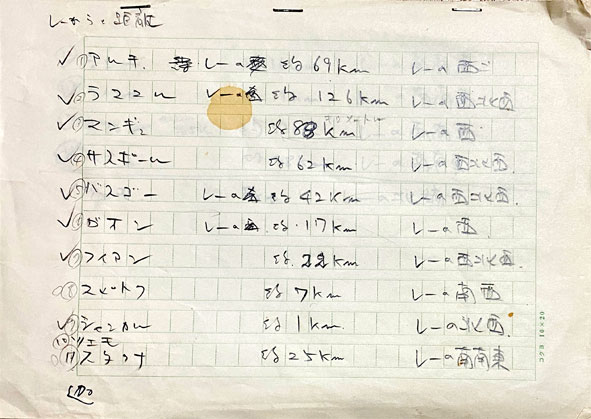 レーからの距離
✓①アルチ. レーの西 約69km レーの西
✓②ラマユル レーの西 約 126km レーの西北西
✓③マンギュ 約 km レーの西
✓④サスポール 約62km レーの西北西.
✓⑤バスゴー レーの西 約42km レーの西北西.
✓⑥ガオン レーの西 約17km レーの西
✓⑦フィアン 約22km レーの西北西.
⑧スピトク 約7km レーの南西
✓⑨シャンカル 約1km レーの北西.
⑩ツェモ
⑪スタクナ 約25km レーの南南東
コクヨ 10×20